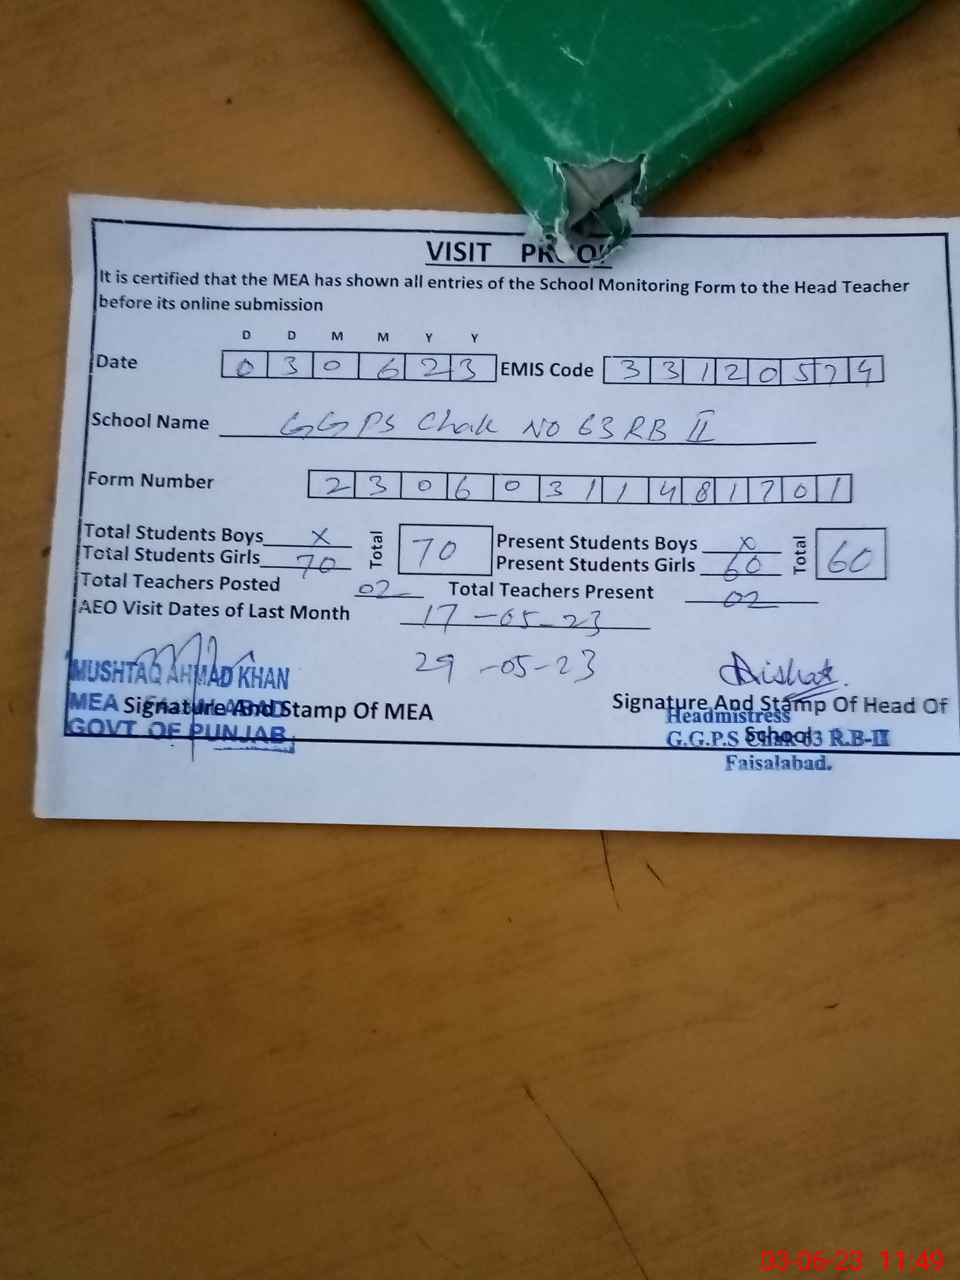 VISIT PROOF
It is certified that the MEA has shown all entries of the School Monitoring Form to the Head Teacher
before its online submission
D D M M Y Y
Date 0 3 0 6 2 3 EMIS Code 3 3 1 2 0 5 7 4
School Name GGPS Chak No 63 RB II
Form Number 2 3 0 6 0 3 1 1 4 8 1 7 0 1
Total Students Boys X Total 70 Present Students Boys X Total 60
Total Students Girls 70 Present Students Girls 60
Total Teachers Posted 02 Total Teachers Present 02
AEO Visit Dates of Last Month 17-05-23
29-05-23
MUSHTAQ AHMAD KHAN
MEA
Signature And Stamp Of MEA
GOVT OF PUNJAB
Signature And Stamp Of Head Of
School
Headmistress
G.G.P.S Chak 63 R.B-II
Faisalabad.
03-06-23 11:49